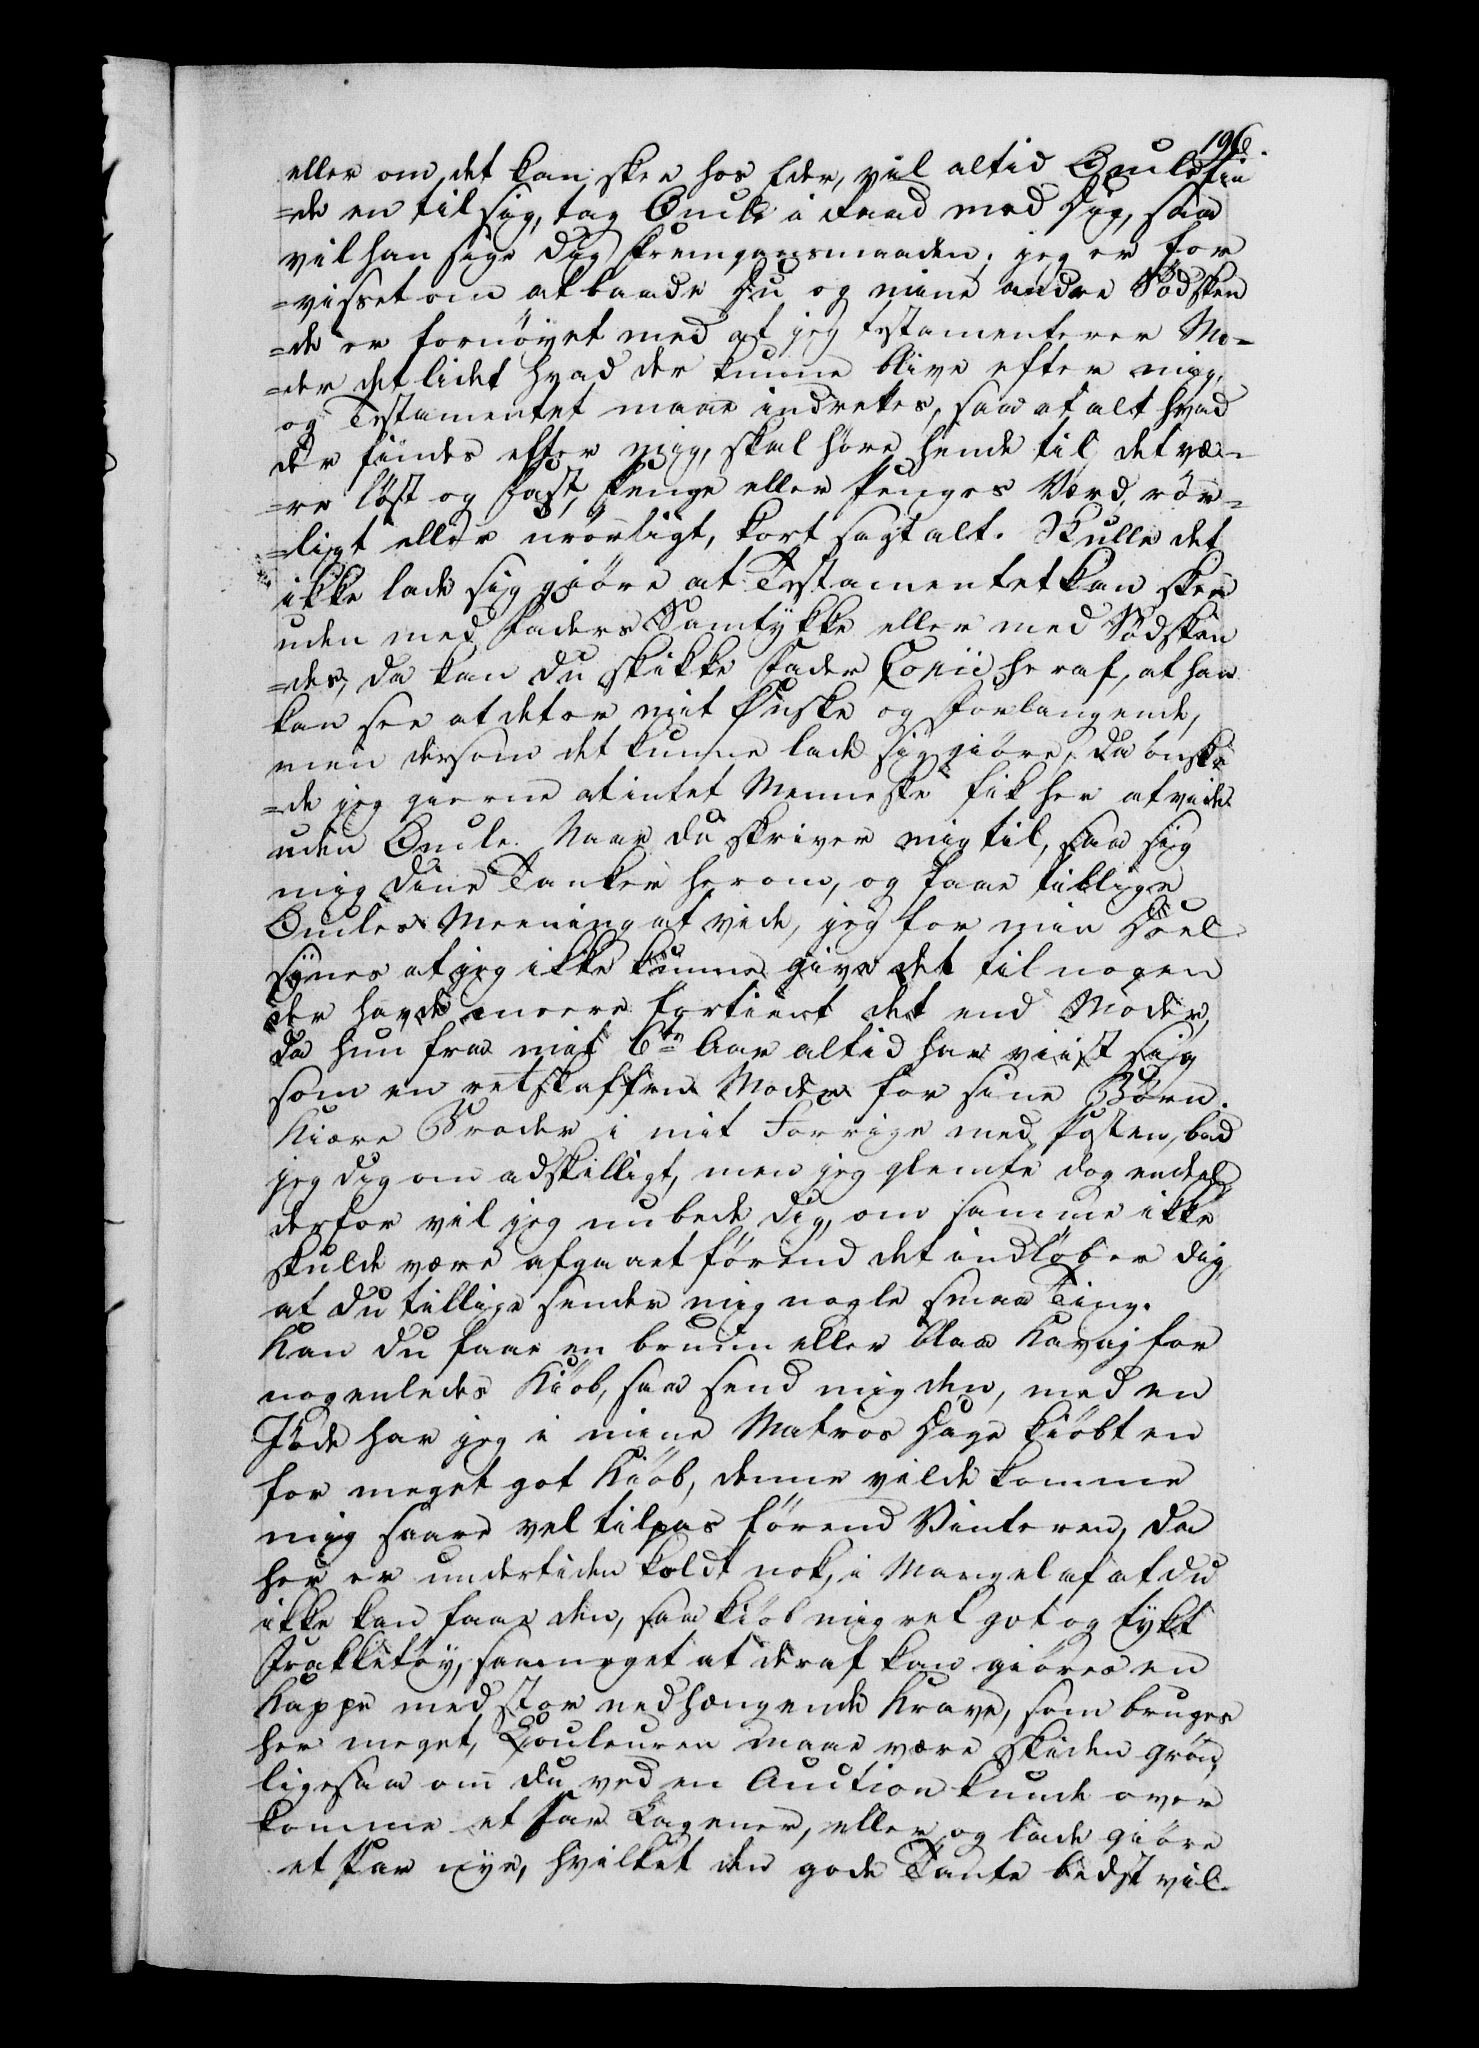 196.
eller om det kan skee hos Eder, vil altid Oncle fin
=de en til sig, tag Oncle i Raad med dig, saa
vil han sige dig Fremgangsmaaden; jeg er for
=visset om at baade du og mine andre Södsken
=de er fornöyet med at jeg testamenterer Mo=
=der det lidet hvad der kunne blive efter mig,
og Testamentet maae indrettes, saa at alt hvad
der findes efter mig, skal höre hende til det væ=
=re löst og fast, Penge eller Penges Værd, rör=
=ligt eller urörligt, kort sagt alt. Skulle det
ikke lade sig giöre at Testamentet kan skee
uden med Faders Samtykke eller med Södsken
=des, da kan du skikke Fader Copii heraf, at han
kan see at det er mit Önske og Forlangende,
men dersom det kunne lade sig giöre, da önske
=de jeg gierne at intet Menneske fik her at vide
uden Oncle. Naar du skriver mig til, saa siig
mig dine Tanker herom, og faae tillige
Oncles Meening at vide, jeg for min Deel
synes at jeg ikke kunne give det til nogen
der havde meere fortient det end Moder,
da hun fra mit 6te Aar altid har viist sig
som en retskaffen Moder for sine Börn.
Kiære Broder i mit Forrige med Posten, bad
jeg dig om adskilligt, men jeg glemte dog endeel
derfor vil jeg nu bede dig, om samme ikke
skulde være afgaaet förend det indlöber dig,
at du tillige sender mig nogle smaa Ting.
Kan du faae en bruun eller blaa Kavaj for
nogenledes Kiöb, saa send mig den, med en
Jöde har jeg i mine Matros Dage kiöbt en
for meget got Kiöb, denne vilde komme
mig saare vel tilpas förend Vinteren, da
her er undertiden koldt nok, i Mangel af at du
ikke kan faae den, saa kiöb mig ret got og tykt
Frakketöy, saameget at deraf kan giöres en
Kappe med stor nedhængende Krave, som bruges
her meget, Couleuren maae være skiden grön,
ligesaa om du ved en Auction kunde over
komme et Par Lagener, eller og lade giöre
et Par nye, hvilket den gode Tante bedst vil